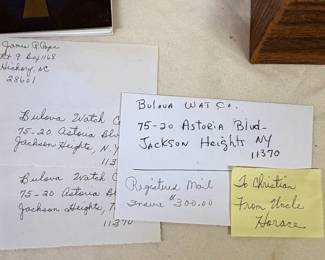 James R Pope
Rt 9 Box 1168
Hickory, NC
28601
Bulova Watch C
75-20 Astoria Blv
Jackson Heights, N.Y.
11370
Bulova Watch C
75-20 Astoria B
Jackson Heights,
11370
Bulova Wat Co.
75-20 Astoria Blvd-
Jackson Heights NY
11370
Registered Mail
Insure $300.00
To Christian
From Uncle
Horace